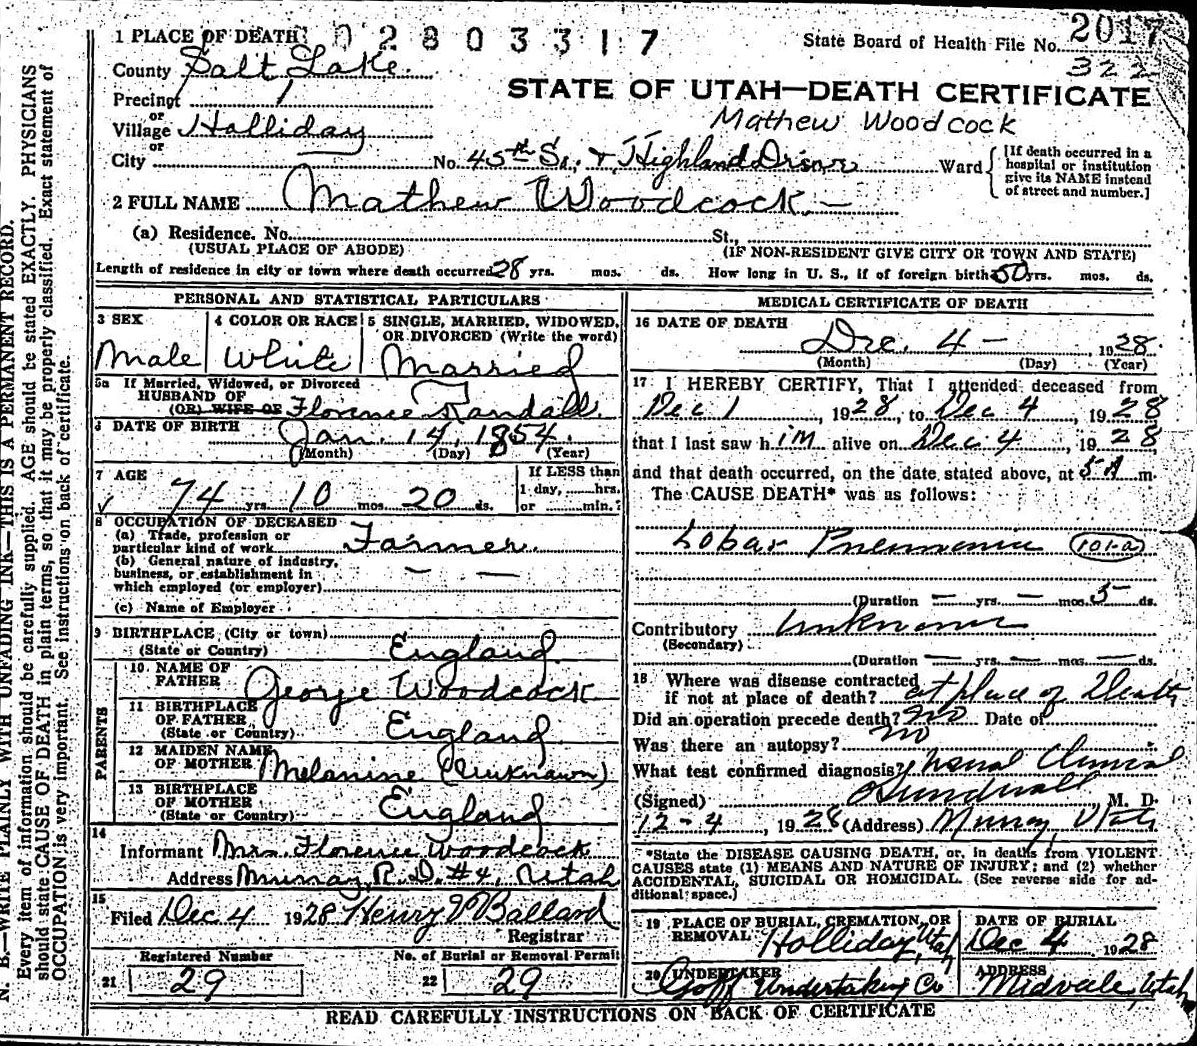 1 PLACE OF DEATH 0 2 8 0 3 3 1 7
State Board of Health File No. 2017
County Salt Lake
322
Precinct 1
STATE OF UTAH—DEATH CERTIFICATE
or
Village Holliday
Mathew Woodcock
or
City No. 45th So. + Highland Drive Ward
[If death occurred in a hospital or institution give its NAME instead of street and number.]
2 FULL NAME Mathew Woodcock
(a) Residence. No. St.
(USUAL PLACE OF ABODE) (IF NON-RESIDENT GIVE CITY OR TOWN AND STATE)
Length of residence in city or town where death occurred 28 yrs. mos. ds. How long in U. S., if of foreign birth 50 yrs. mos. ds.
PERSONAL AND STATISTICAL PARTICULARS
3 SEX 4 COLOR OR RACE 5 SINGLE, MARRIED, WIDOWED,
OR DIVORCED (Write the word)
Male White Married
5a If Married, Widowed, or Divorced
HUSBAND OF
(OR) WIFE OF Florence Randall
6 DATE OF BIRTH Jan. 14, 1854.
(Month) (Day) (Year)
7 AGE If LESS than
74 yrs. 10 mos. 20 ds. 1 day, hrs.
or min.
8 OCCUPATION OF DECEASED
(a) Trade, profession or
particular kind of work Farmer
(b) General nature of industry,
business, or establishment in
which employed (or employer) — —
(c) Name of Employer
9 BIRTHPLACE (City or town)
(State or Country) England
PARENTS
10 NAME OF
FATHER George Woodcock
11 BIRTHPLACE
OF FATHER
(State or Country) England
12 MAIDEN NAME
OF MOTHER Melanine (Unknown)
13 BIRTHPLACE
OF MOTHER
(State or Country) England
14
Informant Mrs. Florence Woodcock
Address Murray, R.D. #4, Utah
15
Filed Dec 4 1928 Henry Ballard
Registrar
Registered Number No. of Burial or Removal Permit
21 29 22 29
MEDICAL CERTIFICATE OF DEATH
16 DATE OF DEATH
Dec. 4 — 1928
(Month) (Day) (Year)
17 I HEREBY CERTIFY, That I attended deceased from
Dec 1, 1928, to Dec 4, 1928
that I last saw him alive on Dec. 4, 1928
and that death occurred, on the date stated above, at 5 A m.
The CAUSE DEATH* was as follows:
Lobar Pneumonia 101-a
(Duration — yrs. — mos. 5 ds.
Contributory Unknown
(Secondary)
(Duration — yrs. — mos. — ds.
18 Where was disease contracted
if not at place of death? at place of Death
Did an operation precede death? No Date of
Was there an autopsy? No
What test confirmed diagnosis? Usual Clinical
(Signed) M. D.
12-4, 1928 (Address) Murray, Utah
*State the DISEASE CAUSING DEATH, or, in deaths from VIOLENT
CAUSES state (1) MEANS AND NATURE OF INJURY; and (2) whether
ACCIDENTAL, SUICIDAL OR HOMICIDAL. (See reverse side for ad-
ditional space.)
19 PLACE OF BURIAL, CREMATION, OR
REMOVAL Holliday, Utah
DATE OF BURIAL
Dec 4 1928
20 UNDERTAKER
Goff Undertaking Co
ADDRESS
Midvale, Utah
READ CAREFULLY INSTRUCTIONS ON BACK OF CERTIFICATE
N. B.—WRITE PLAINLY WITH UNFADING INK—THIS IS A PERMANENT RECORD.
Every item of information should be carefully supplied. AGE should be stated EXACTLY. PHYSICIANS
should state CAUSE OF DEATH in plain terms, so that it may be properly classified. Exact statement of
OCCUPATION is very important. See instructions on back of certificate.